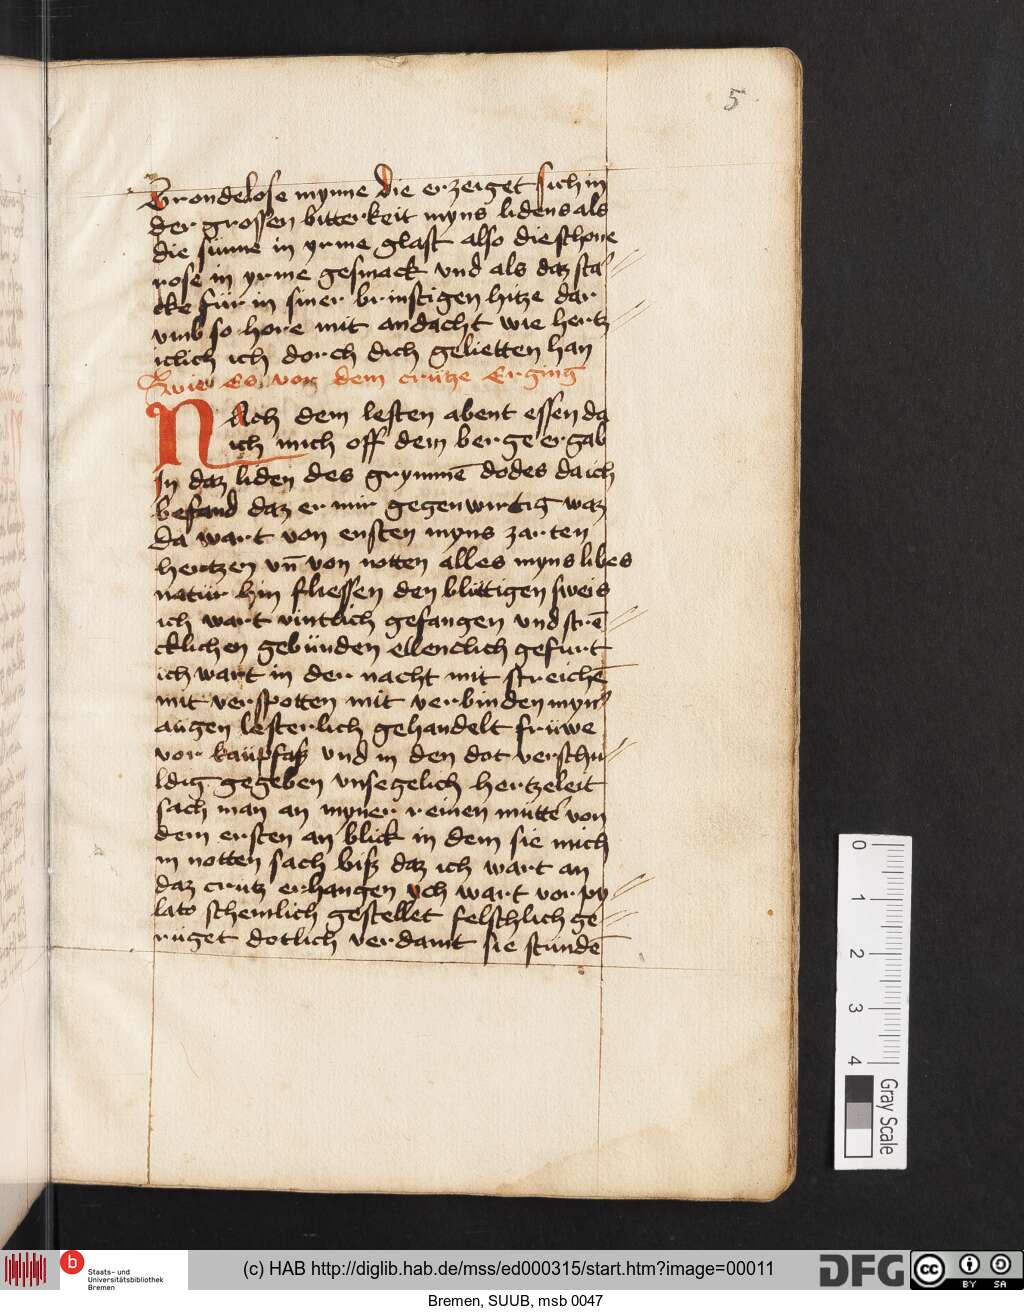 5
Grondelose mynne die erzeiget sich in
der grossen bitterkeit myns lidens als
die sunne in yrme glast also die schone
rose in yrme gesmack vnd als daz sta//
cke für in siner brinstigen hitze dar
vmb so hore mit andacht wie hertz//
iclich ich dorch dich gelietten han
wie es vor dem crütze Erging
NAch dem lesten abent essen da
ich mich off dem berge ergab
In daz liden des grymmē dodes da ich
befand daz er mir gegenwirtig waz
da wart von ensten myns zarten
hertzen vn̄ von notten alles myns libes
natür hin fliessen den blüttigen sweis
ich wart vintlich gefangen vnd strē//
cklichen gebünden ellenclich gefurt
ich wart in der nacht mit streichē
mit verspotten mit verbinden myn̄
augen lesterlich gehandelt früwe
vor kaüpfasz vnd in den dot verschu//
ldig gegeben vnsegelich hertzeleit
sach man an myner reinen mütt̄ von
dem ersten an blick in dem sie mich
in notten sach bisz daz ich wart an
daz crutz erhangen ych wart vor py//
lato schemlich gestellet felschlich ge//
rüget dotlich verdamt sie stundē
0
1
2
3
4
Gray Scale
b
Staats- und
Universitätsbibliothek
Bremen
(c) HAB http://diglib.hab.de/mss/ed000315/start.htm?image=00011
DFG
cc
BY SA
Bremen, SUUB, msb 0047